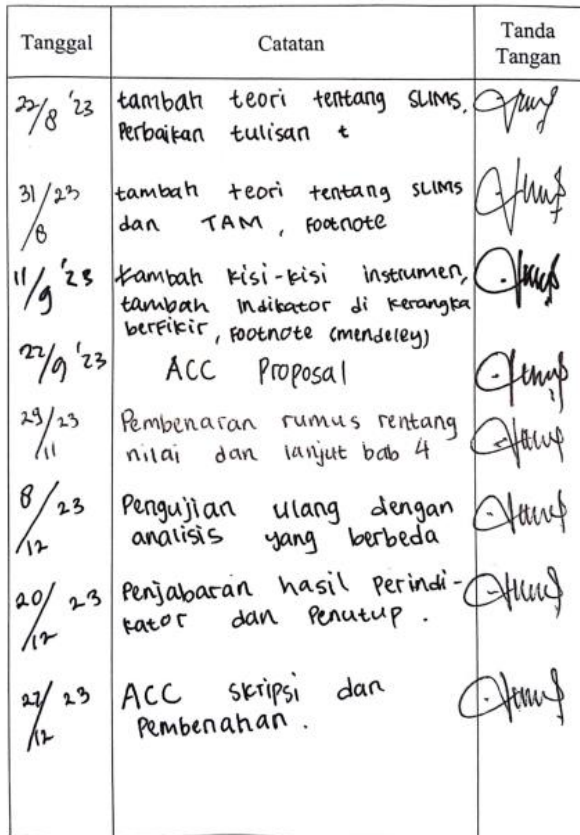 Tanggal
Catatan
Tanda
Tangan
22/8 '23
tambah teori tentang SLIMS,
Perbaikan tulisan t
31/8 23
tambah teori tentang SLIMS
dan TAM, Footnote
11/9 '23
tambah kisi-kisi instrumen,
tambah indikator di kerangka
berfikir, Footnote (mendeley)
22/9 '23
ACC Proposal
29/11 23
Pembenaran rumus rentang
nilai dan lanjut bab 4
8/12 23
Pengujian ulang dengan
analisis yang berbeda
20/12 23
Penjabaran hasil perindi-
kator dan Penutup.
27/12 23
ACC skripsi dan
Pembenahan.